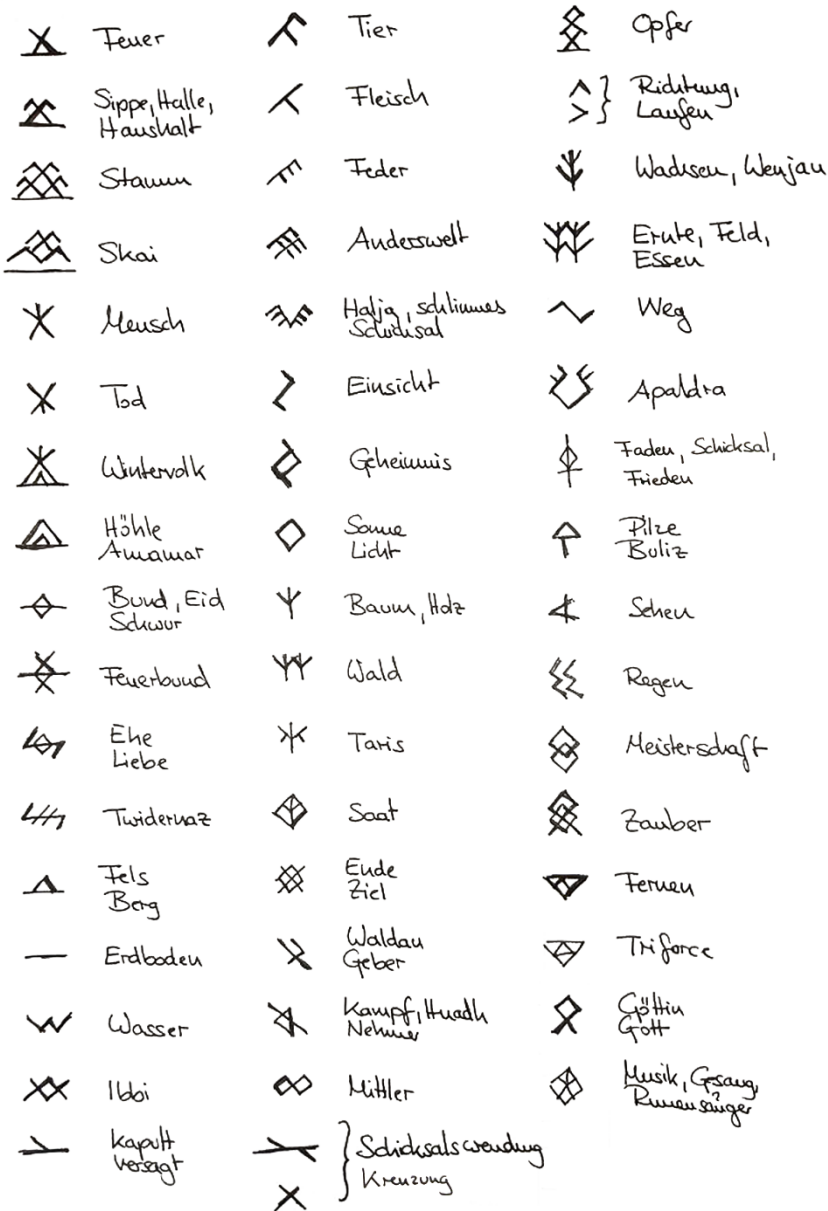 Feuer
Sippe, Halle,
Haushalt
Stamm
Skai
Mensch
Tod
Wintervolk
Höhle
Amamar
Bund, Eid
Schwur
Feuerbund
Ehe
Liebe
Twidernaz
Fels
Berg
Erdboden
Wasser
Ibbi
kaputt
versagt
Tier
Fleisch
Feder
Anderswelt
Halja, schlimmes
Schicksal
Einsicht
Geheimnis
Sonne
Licht
Baum, Holz
Wald
Taris
Saat
Ende
Ziel
Waldan
Geber
Kampf, Huadh
Nehmer
Mittler
Schicksalswendung
Kreuzung
Opfer
Richtung,
Laufen
Wachsen, Wenjan
Ernte, Feld,
Essen
Weg
Apaldra
Faden, Schicksal,
Frieden
Pilze
Buliz
Sehen
Regen
Meisterschaft
Zauber
Fernen
Triforce
Göttin
Gott
Musik, Gesang,
Runensänger